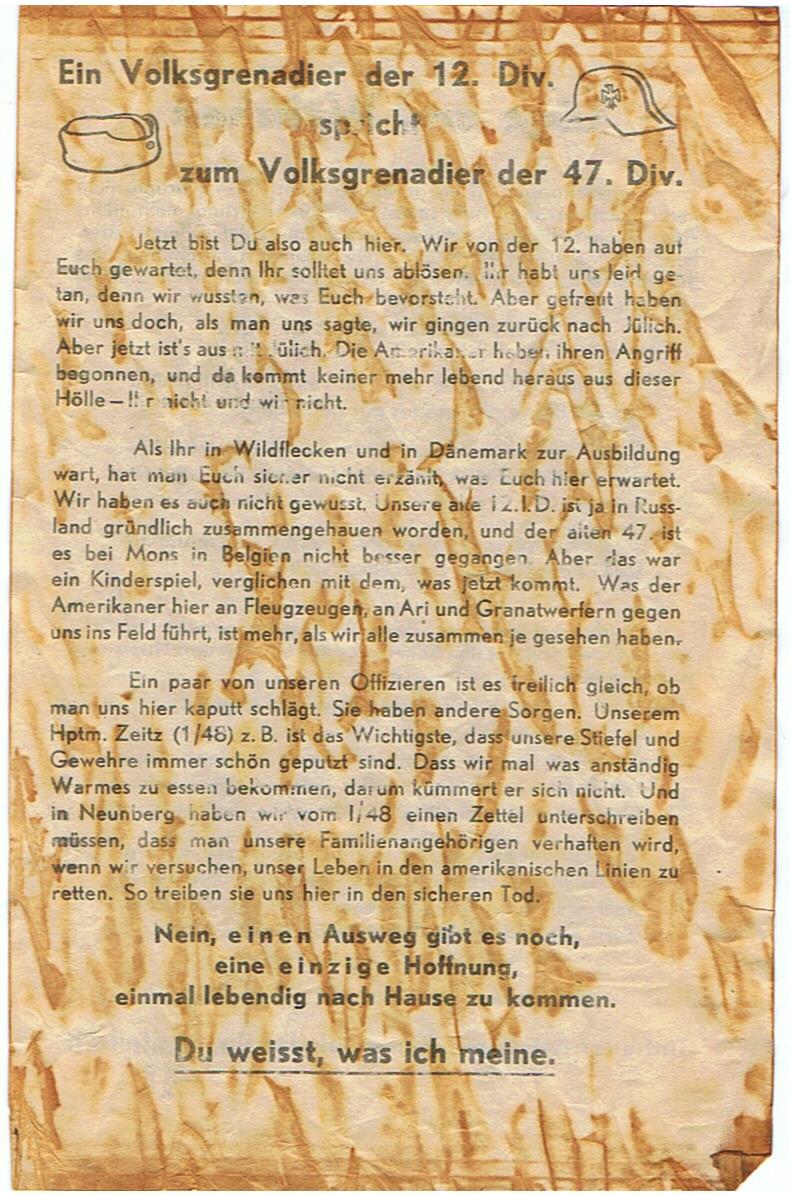 Ein Volksgrenadier der 12. Div.
spricht
zum Volksgrenadier der 47. Div.
Jetzt bist Du also auch hier. Wir von der 12. haben auf
Euch gewartet, denn Ihr solltet uns ablösen. Ihr habt uns leid ge-
tan, denn wir wussten, was Euch bevorsteht. Aber gefreut haben
wir uns doch, als man uns sagte, wir gingen zurück nach Jülich.
Aber jetzt ist's aus mit Jülich. Die Amerikaner haben ihren Angriff
begonnen, und da kommt keiner mehr lebend heraus aus dieser
Hölle — Ihr nicht und wir nicht.
Als Ihr in Wildflecken und in Dänemark zur Ausbildung
wart, hat man Euch sicher nicht erzählt, was Euch hier erwartet.
Wir haben es auch nicht gewusst. Unsere alte 12. I.D. ist ja in Russ-
land gründlich zusammengehauen worden, und der alten 47. ist
es bei Mons in Belgien nicht besser gegangen. Aber das war
ein Kinderspiel, verglichen mit dem, was jetzt kommt. Was der
Amerikaner hier an Fleugzeugen, an Ari und Granatwerfern gegen
uns ins Feld führt, ist mehr, als wir alle zusammen je gesehen haben.
Ein paar von unseren Offizieren ist es freilich gleich, ob
man uns hier kaputt schlägt. Sie haben andere Sorgen. Unserem
Hptm. Zeitz (1/48) z. B. ist das Wichtigste, dass unsere Stiefel und
Gewehre immer schön geputzt sind. Dass wir mal was anständig
Warmes zu essen bekommen, darum kümmert er sich nicht. Und
in Neunberg haben wir vom I/48 einen Zettel unterschreiben
müssen, dass man unsere Familienangehörigen verhaften wird,
wenn wir versuchen, unser Leben in den amerikanischen Linien zu
retten. So treiben sie uns hier in den sicheren Tod.
Nein, einen Ausweg gibt es noch,
eine einzige Hoffnung,
einmal lebendig nach Hause zu kommen.
Du weisst, was ich meine.